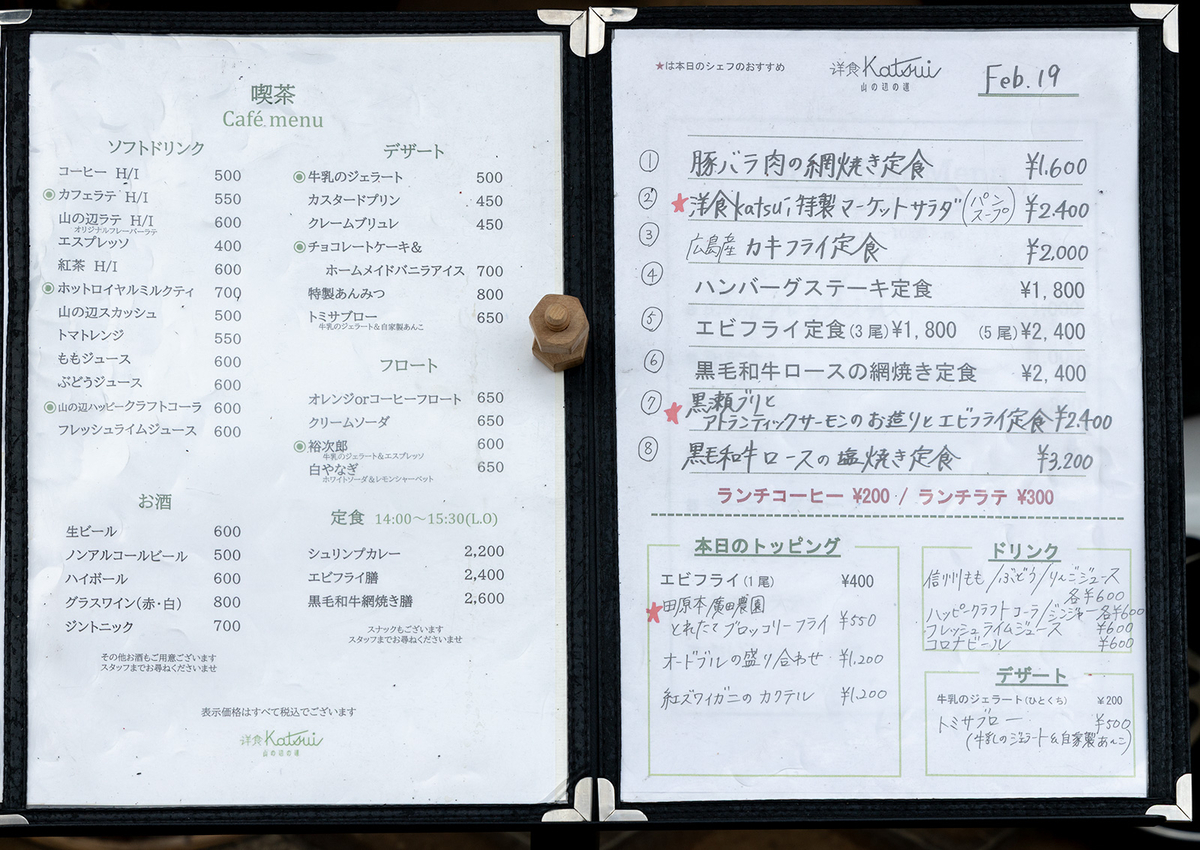 喫茶
Café menu
ソフトドリンク
コーヒー H/I 500
◉カフェラテ H/I 550
山の辺ラテ H/I 600
オリジナルフレーバーラテ
エスプレッソ 400
紅茶 H/I 600
◉ホットロイヤルミルクティ 700
山の辺スカッシュ 500
トマトレンジ 550
ももジュース 600
ぶどうジュース 600
◉山の辺ハッピークラフトコーラ 600
フレッシュライムジュース 600
お酒
生ビール 600
ノンアルコールビール 500
ハイボール 600
グラスワイン(赤・白) 800
ジントニック 700
その他お酒もご用意ございます
スタッフまでお尋ねくださいませ
デザート
◉牛乳のジェラート 500
カスタードプリン 450
クレームブリュレ 450
◉チョコレートケーキ&
ホームメイドバニラアイス 700
特製あんみつ 800
トミサブロー 650
牛乳のジェラート&自家製あんこ
フロート
オレンジorコーヒーフロート 650
クリームソーダ 650
◉裕次郎 600
牛乳のジェラート&エスプレッソ
白やなぎ 650
ホワイトソーダ&レモンシャーベット
定食 14:00～15:30(L.O)
シュリンプカレー 2,200
エビフライ膳 2,400
黒毛和牛網焼き膳 2,600
スナックもございます
スタッフまでお尋ねくださいませ
表示価格はすべて税込でございます
洋食 Katsui
山の辺の道
★は本日のシェフのおすすめ
洋食 Katsui
山の辺の道
Feb.19
① 豚バラ肉の網焼き定食 ¥1.600
② ★洋食katsui特製マーケットサラダ(パン スープ) ¥2.400
③ 広島産 カキフライ定食 ¥2,000
④ ハンバーグステーキ定食 ¥1,800
⑤ エビフライ定食(3尾)¥1,800 (5尾)¥2,400
⑥ 黒毛和牛ロースの網焼き定食 ¥2,400
⑦ ★黒瀬ブリと
アトランティックサーモンのお造りとエビフライ定食 ¥2.400
⑧ 黒毛和牛ロースの塩焼き定食 ¥3,200
ランチコーヒー ¥200 / ランチラテ ¥300
本日のトッピング
エビフライ(1尾) ¥400
★田原本廣田農園
とれたてブロッコリーフライ ¥550
オードブルの盛り合わせ ¥1,200
紅ズワイガニのカクテル ¥1,200
ドリンク
信州もも/ぶどう/りんごジュース
各¥600
ハッピークラフトコーラ/ジンジャー各¥600
フレッシュライムジュース ¥600
コロナビール ¥600
デザート
牛乳のジェラート(ひとくち) ¥200
トミサブロー ¥500
(牛乳のジェラート&自家製あんこ)